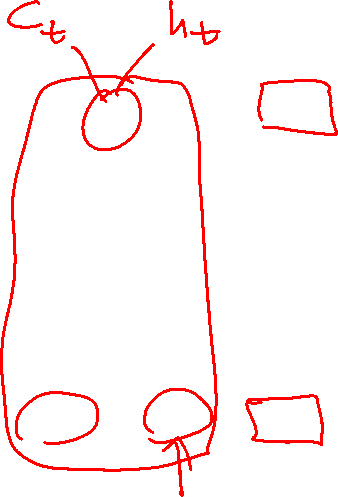 C_t h_t